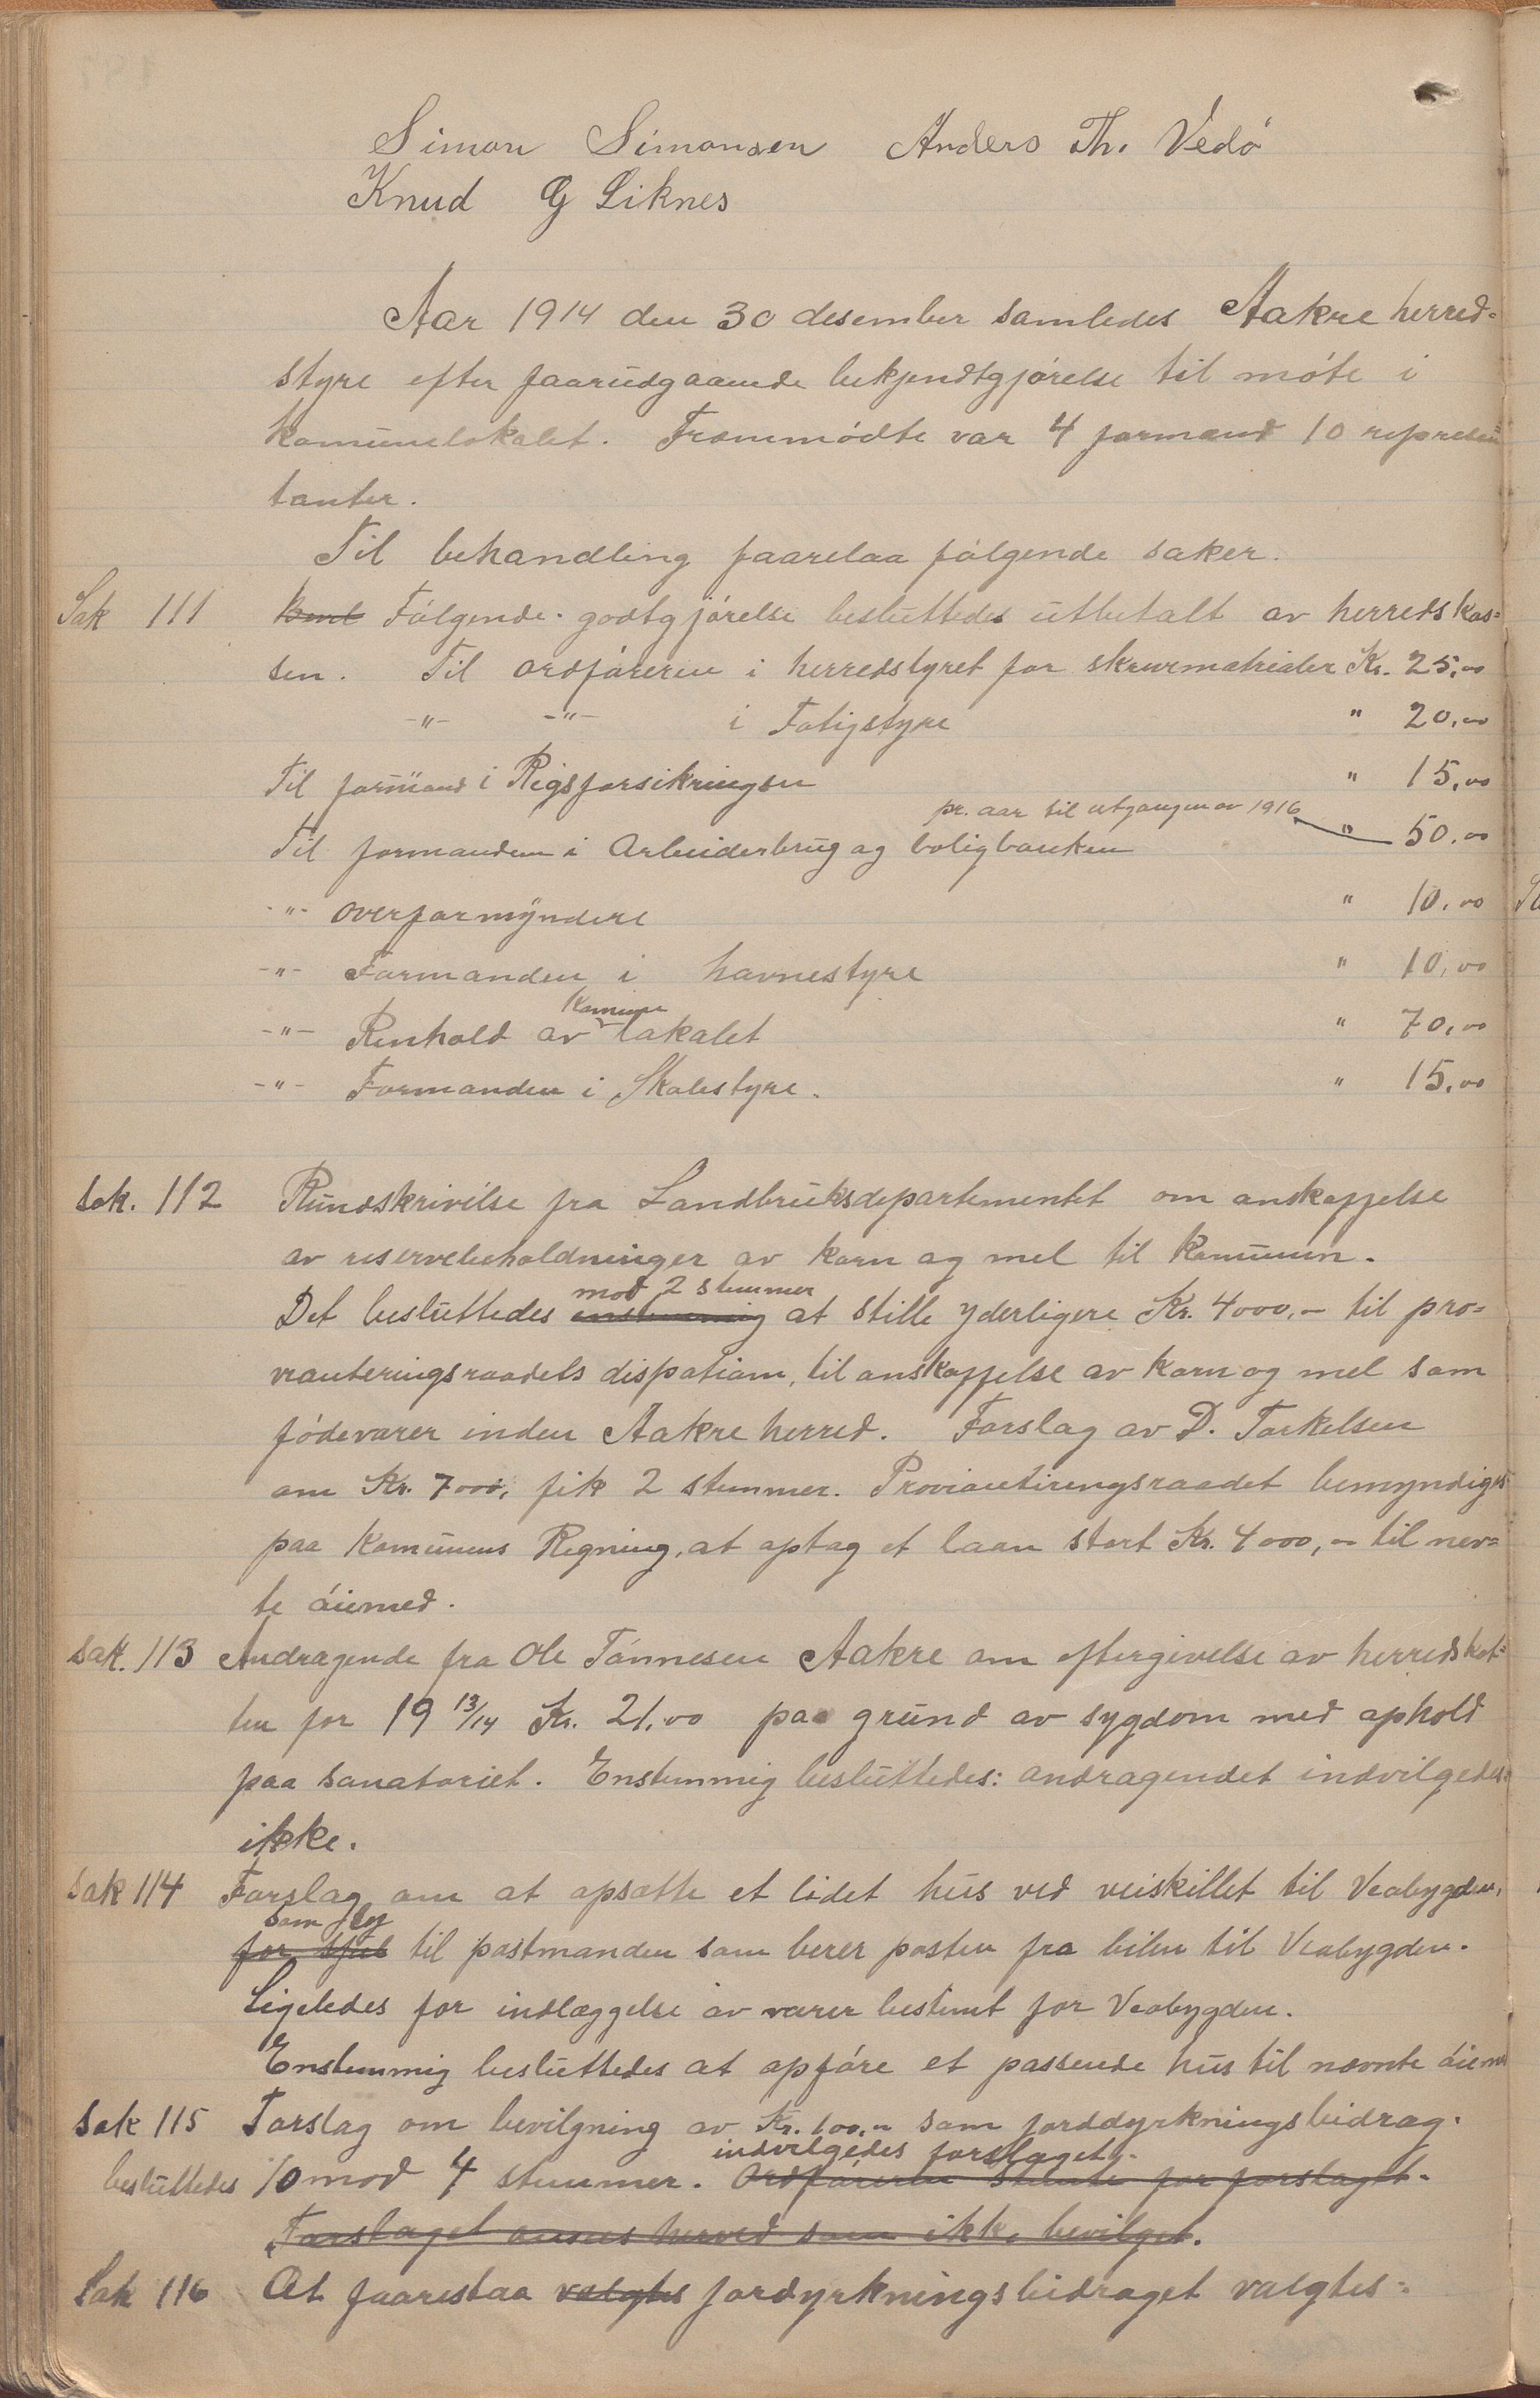 Simon Simonsen Anders Th. Vedö
Knud G Liknes
Aar 1914 den 30 desember samledes Aakre herred-
styre efter faarudgaaende bekjendtgjörelse til möte i
komunelokalet. Frammödte var 4 formænd 10 represen-
tanter.
Til behandling faarelaa fölgende saker.
Sak 111 Fölgende godtgjörelse besluttedes utbetalt av herredskas-
sen. Til ordföreren i herredstyret for skrivmatrialer Kr. 25,00
-"- -"- i Fatigstyre " 20,00
Til formand i Rigsforsikringen " 15,00
pr. aar til utgangen av 1916
Til formanden i Arbeiderbrug og boligbanken " 50.00
-"- overformyndere " 10,00
-"- Formanden i havnestyre " 10,00
-"- Renhold av komune lokalet " 70,00
-"- Formanden i Skolestyre. " 15,00
Sak. 112 Rundskrivelse fra Landbruksdepartementet om anskaffelse
av reservebeholdninger av korn og mel til komunen.
Det besluttedes enstemmig mod 2 stemmer at stille yderligere Kr. 4000,- til pro-
vianteringsraadets dispotion, til anskaffelse av korn og mel som
födevarer inden Aakre herred. Forslag av D. Torkelsen
om Kr. 7000, fik 2 stemmer. Provianteringsraadet bemyndiges
paa komunens Regning, at optag et laan stort Kr. 4000,- til nev-
te öiemed.
Sak. 113 Andragende fra Ole Tönnesen Aakre om eftergivelse av herredskat-
ten for 19 13/14 Kr. 21,00 paa grund av sygdom med ophold
paa sanatoriet. Enstemmig besluttedes: andragendet indvilgedes
ikke.
Sak 114 Forslag om at opsætte et lidet hus ved veiskillet til Veabygden,
som ly
for skjul til postmanden som berer posten fra bilen til Veabygden.
Ligeledes for indlæggelse av varer bestemt for Veabygden.
Enstemmig besluttedes at opföre et passende hus til nævnte öiem
Sak 115 Forslag om bevilgning av Kr. 100,- som jorddyrkningsbidrag.
indvilgedes forslaget.
besluttedes 10 mod 4 stemmer. Ordföreren stemte for forslaget.
Forslaget ansees herved som ikke bevilget.
Sak 116 At faarestaa valgtes jordyrkningsbidraget valgtes: